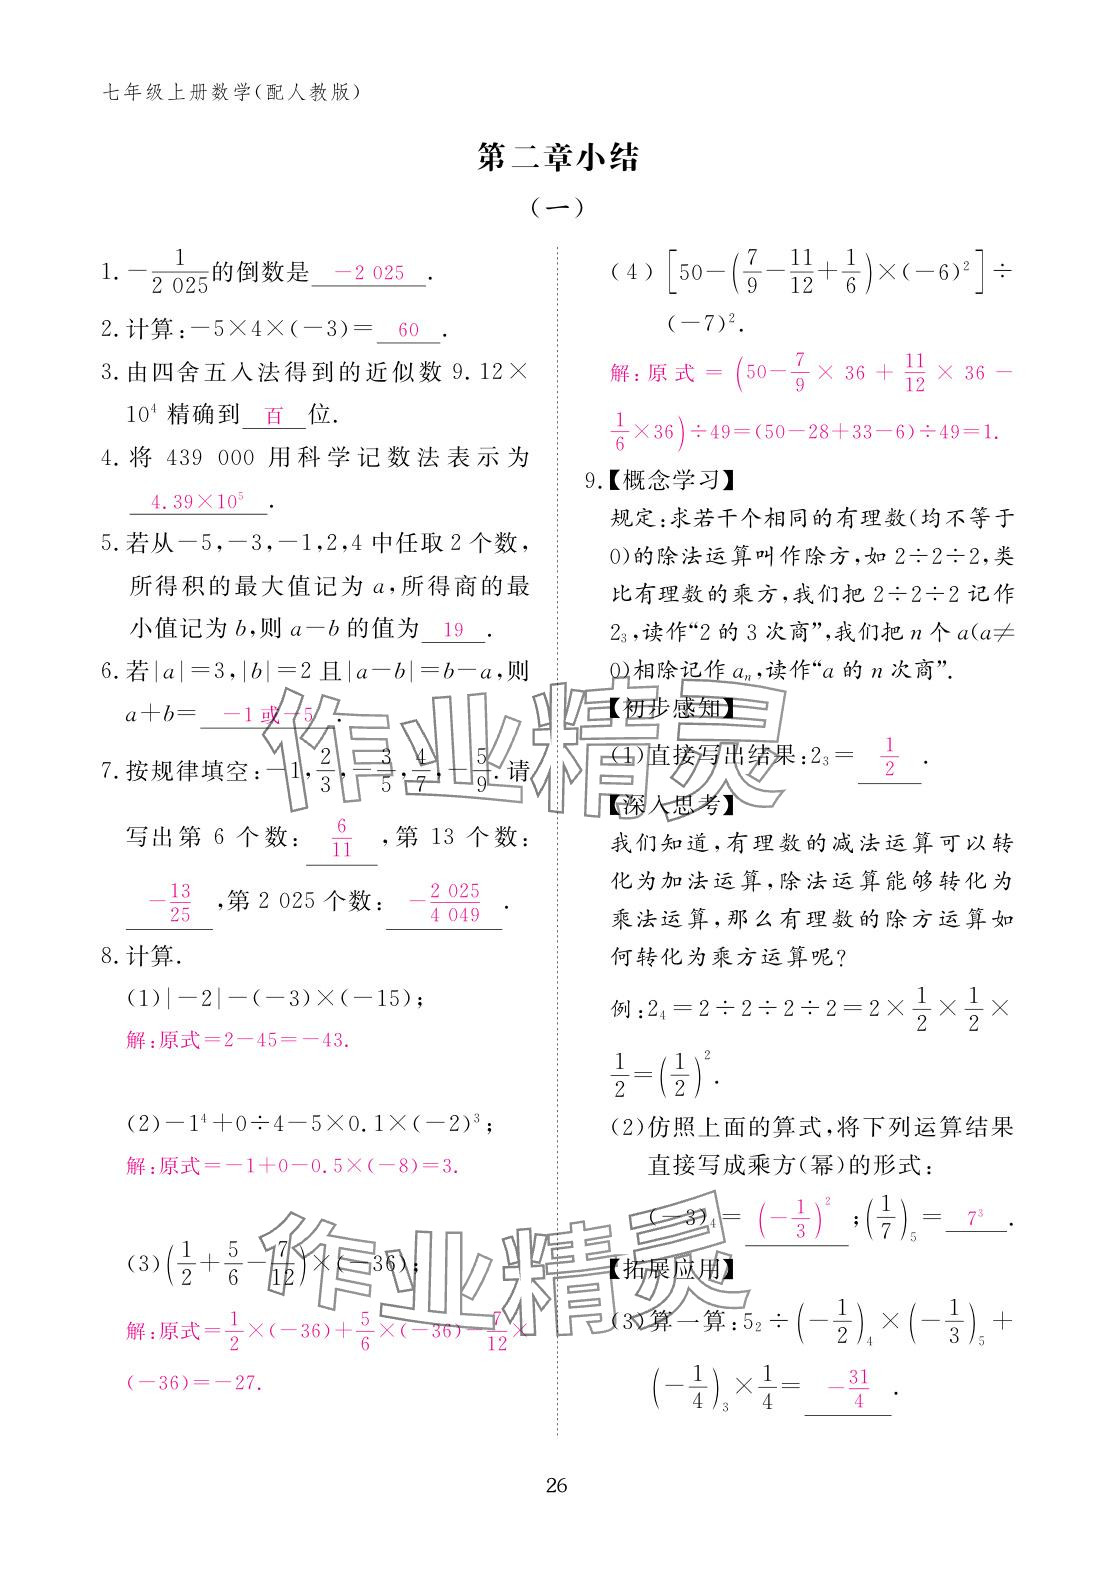 七年级上册数学(配人教版)
第二章小结
(一)
1. -1/2 025的倒数是 -2 025 .
2. 计算:-5×4×(-3)= 60 .
3. 由四舍五入法得到的近似数 9.12×
10⁴ 精确到 百 位.
4. 将 439 000 用科学记数法表示为
4.39×10⁵ .
5. 若从-5,-3,-1,2,4 中任取 2 个数,
所得积的最大值记为 a,所得商的最
小值记为 b,则 a-b 的值为 19 .
6. 若|a|=3,|b|=2 且|a-b|=b-a,则
a+b= -1 或-5 .
7. 按规律填空:-1,2/3,-3/5,4/7,-5/9.请
写出第 6 个数: 6/11 ,第 13 个数:
-13/25 ,第 2 025 个数: -2 025/4 049 .
8. 计算.
(1)|-2|-(-3)×(-15);
解:原式=2-45=-43.
(2)-1⁴+0÷4-5×0.1×(-2)³;
解:原式=-1+0-0.5×(-8)=3.
(3)(1/2+5/6-7/12)×(-36);
解:原式=1/2×(-36)+5/6×(-36)-7/12×
(-36)=-27.
(4)[50-(7/9-11/12+1/6)×(-6)²]÷
(-7)².
解:原式=(50-7/9×36+11/12×36-
1/6×36)÷49=(50-28+33-6)÷49=1.
9.【概念学习】
规定:求若干个相同的有理数(均不等于
0)的除法运算叫作除方,如 2÷2÷2,类
比有理数的乘方,我们把 2÷2÷2 记作
2₃,读作“2 的 3 次商”,我们把 n 个 a(a≠
0)相除记作 aₙ,读作“a 的 n 次商”.
【初步感知】
(1)直接写出结果:2₃= 1/2 .
【深入思考】
我们知道,有理数的减法运算可以转
化为加法运算,除法运算能够转化为
乘法运算,那么有理数的除方运算如
何转化为乘方运算呢?
例:2₄=2÷2÷2÷2=2×1/2×1/2×
1/2=(1/2)².
(2)仿照上面的算式,将下列运算结果
直接写成乘方(幂)的形式:
(-3)₄= (-1/3)² ;(1/7)₅= 7³ .
【拓展应用】
(3)算一算:5₂÷(-1/2)₄×(-1/3)₅+
(-1/4)₃×1/4= -31/4 .
26
作业精灵
作业精灵